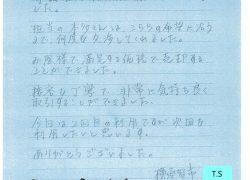 した。
担当の本多さんは、こちらの希望に沿うま
で、何度も交渉してくれました。
お陰様で、満足する価格で売却する
ことができました。
接客も丁寧で、非常に気持ち良く
取引することができました。
今回は2回目の利用ですが次回も
利用したいと思います。
ありがとうございました。
横須賀市
T.S